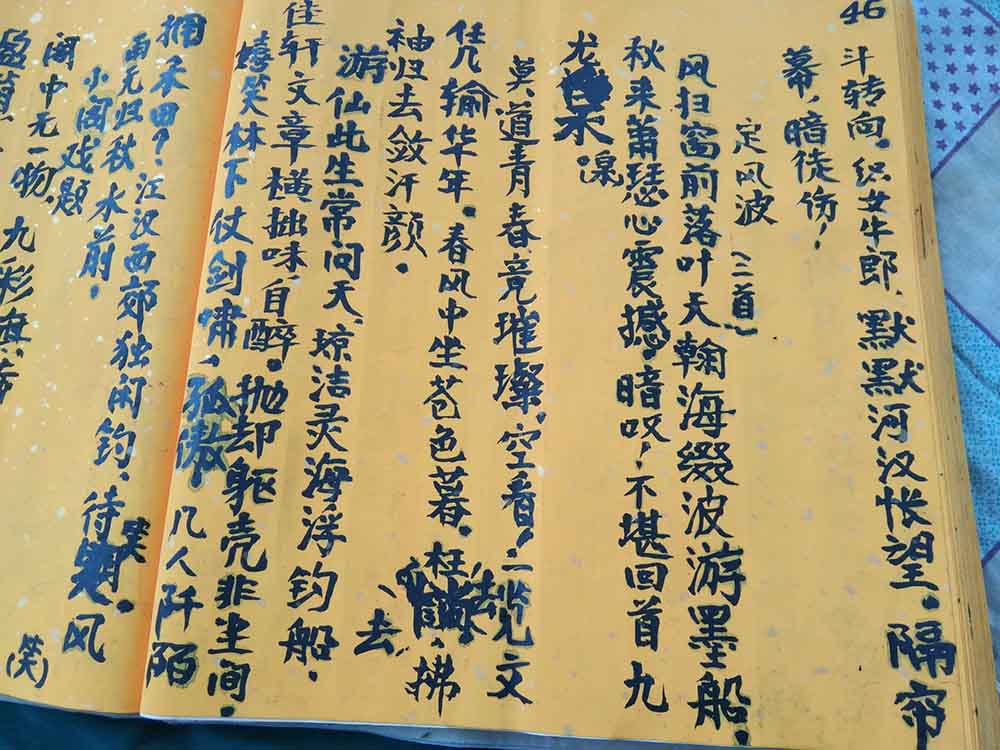 46
斗转向。织女牛郎、默默河汉怅望。隔帘
幕，暗徒伤！
定风波（二首）
风扫窗前落叶天，翰海缀波游墨船。
秋来萧瑟心震撼。暗叹！不堪回首九
尤
莫道青春竞璀璨，空看！一览文
凭输华年。春风中坐苍色暮。枉去，拂
袖归去敛汗颜。
去
游仙此生常问天、琼洁灵海浮钓船。
佳轩文章横拙味自醉。抛却躯壳非生间。
嬉笑林下仗剑啸、孤傲！几人阡陌
拥禾田？江汉西郊独闲钓、待风
雨无归秋水前。
小阁戏题
阁中无一物，九彩
（笑）